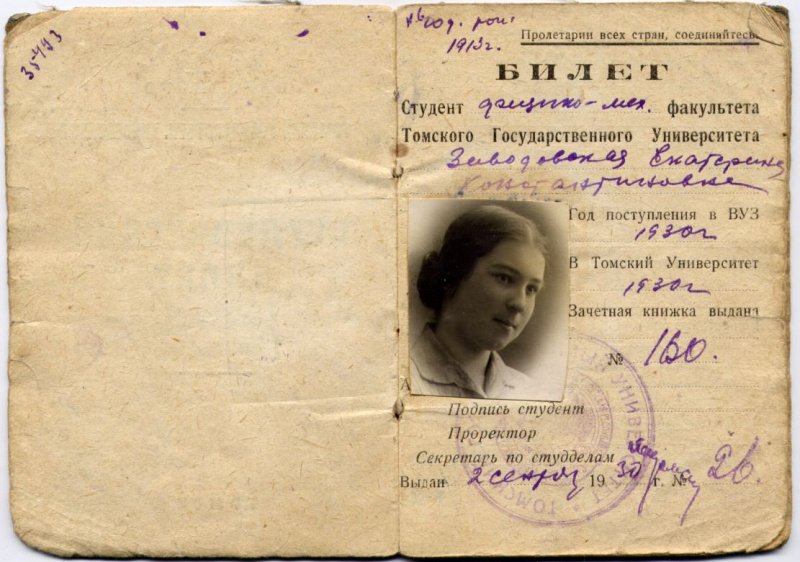 35493
год. рож.
1913 г.
Пролетарии всех стран, соединяйтесь.
БИЛЕТ
Студент физико-мех. факультета
Томского Государственного Университета
Заводовская Екатерина
Константиновна
Год поступления в ВУЗ
1930 г
В Томский Университет
1930 г
Зачетная книжка выдана
№ 160.
Подпись студент
Проректор
Секретарь по студделам
Выдан 2 сентяб 1930 г. №